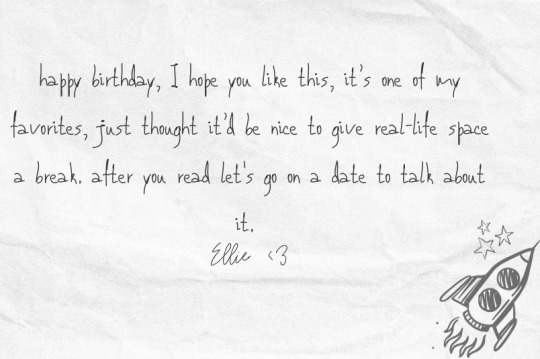 happy birthday, I hope you like this, it's one of my
favorites, just thought it'd be nice to give real-life space
a break. after you read let's go on a date to talk about
it.
Ellie <3